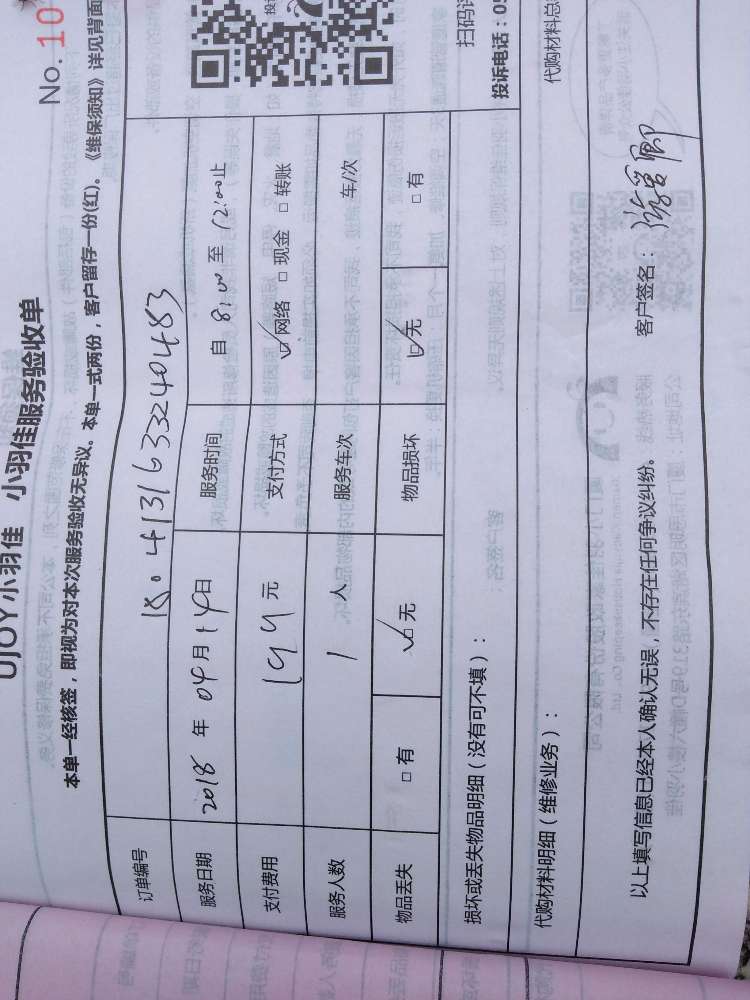 No. 10
UJOY小羽佳 小羽佳服务验收单
本单一经核签，即视为对本次服务验收无异议。本单一式两份，客户留存一份(红)。《维保须知》详见背面
订单编号 1804131633240483
服务日期 2018 年 04 月 14 日 服务时间 自 8:00 至 12:00 止
支付费用 199 元 支付方式 ☑网络 □现金 □转账
服务人数 1 人 服务车次 车/次
物品丢失 □有 ☑无 物品损坏 ☑无 □有
损坏或丢失物品明细（没有可不填）：
扫码
投诉电话：05
代购材料明细（维修业务）：
代购材料总
以上填写信息已经本人确认无误，不存在任何争议纠纷。 客户签名：